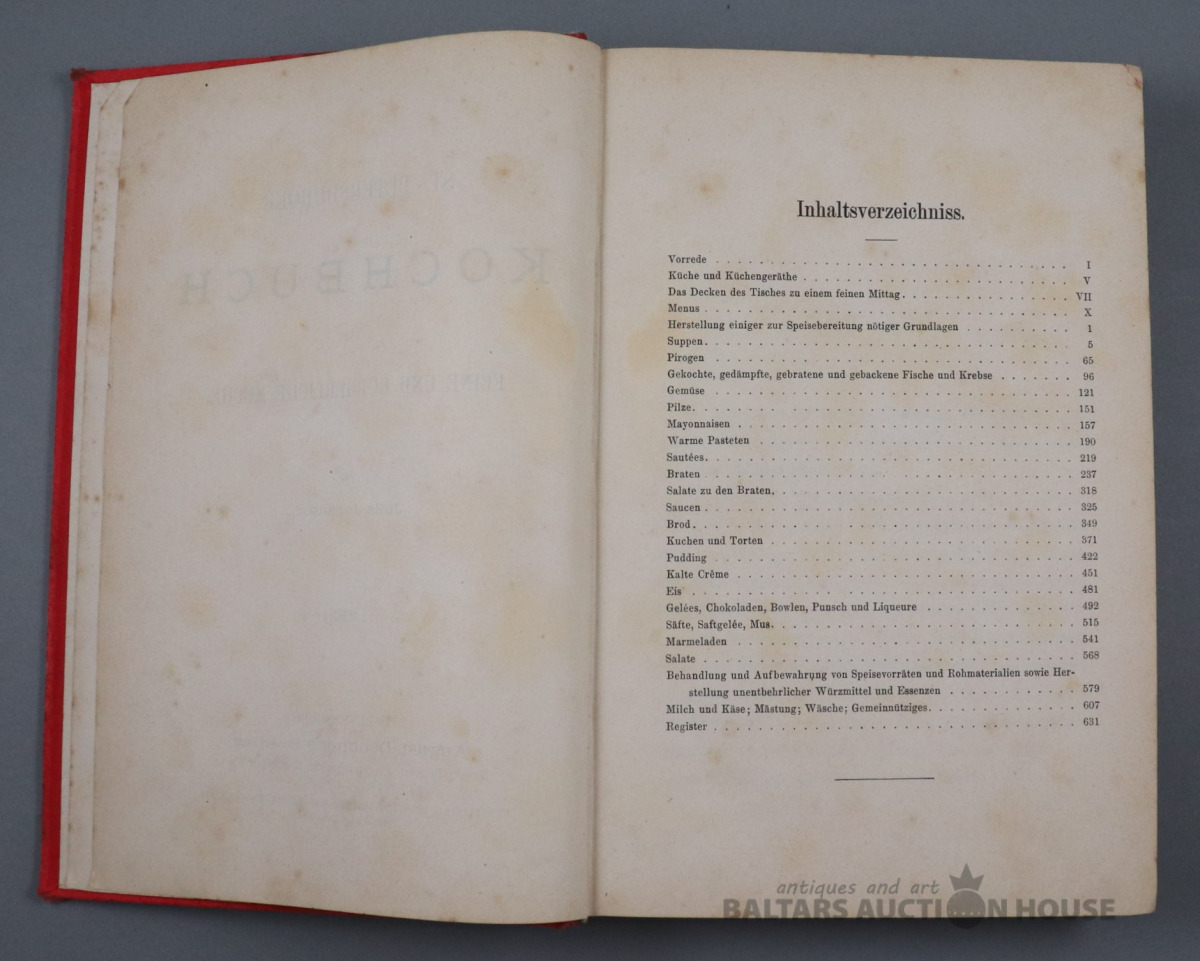 ST. PETERSBURGER
KOCHBUCH
Inhaltsverzeichniss.
Vorrede . . . . . I
Küche und Küchengeräthe . . . . . V
Das Decken des Tisches zu einem feinen Mittag . . . . . VII
Menus . . . . . X
Herstellung einiger zur Speisebereitung nötiger Grundlagen . . . . . 1
Suppen . . . . . 5
Pirogen . . . . . 65
Gekochte, gedämpfte, gebratene und gebackene Fische und Krebse . . . . . 96
Gemüse . . . . . 121
Pilze . . . . . 151
Mayonnaisen . . . . . 157
Warme Pasteten . . . . . 190
Sautées . . . . . 219
Braten . . . . . 237
Salate zu den Braten . . . . . 318
Saucen . . . . . 325
Brod . . . . . 349
Kuchen und Torten . . . . . 371
Pudding . . . . . 422
Kalte Crême . . . . . 451
Eis . . . . . 481
Gelées, Chokoladen, Bowlen, Punsch und Liqueure . . . . . 492
Säfte, Saftgelée, Mus . . . . . 515
Marmeladen . . . . . 541
Salate . . . . . 568
Behandlung und Aufbewahrung von Speisevorräten und Rohmaterialien sowie Her-
stellung unentbehrlicher Würzmittel und Essenzen . . . . . 579
Milch und Käse; Mästung; Wäsche; Gemeinnütziges . . . . . 607
Register . . . . . 631
antiques and art
BALTARS AUCTION HOUSE